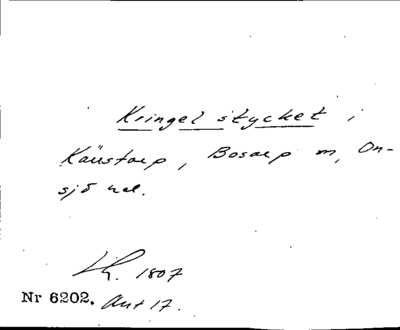 Kringel stycket i
Käustorp, Bosarp m, On-
sjö hd.
1807
Nr 6202. Ant 17.